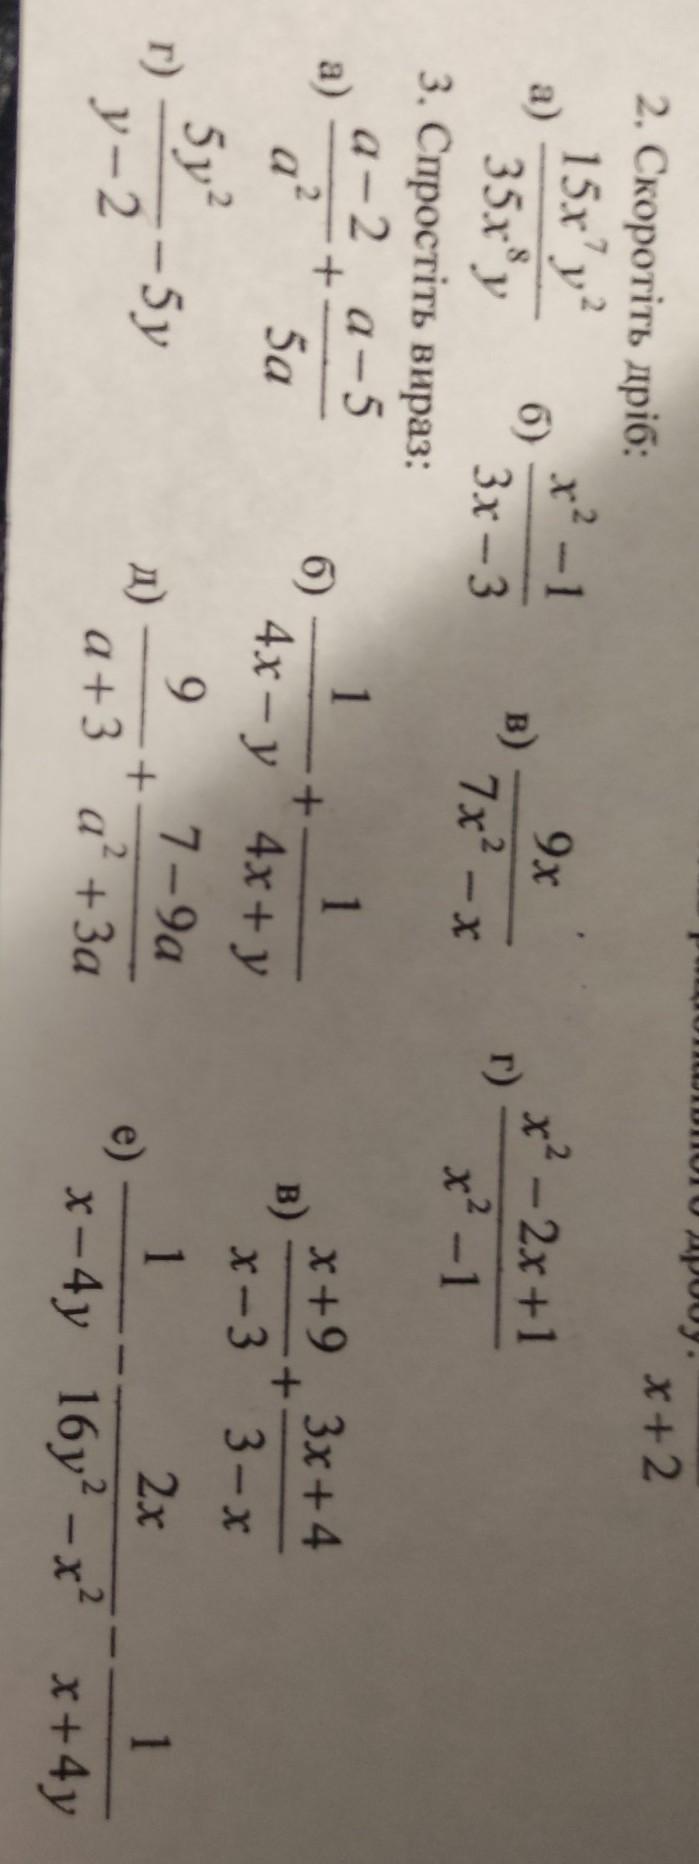 x+2
2. Скоротіть дріб:
а) \frac{15x^7y^2}{35x^8y} б) \frac{x^2-1}{3x-3} в) \frac{9x}{7x^2-x} г) \frac{x^2-2x+1}{x^2-1}
3. Спростіть вираз:
а) \frac{a-2}{a^2}+\frac{a-5}{5a} б) \frac{1}{4x-y}+\frac{1}{4x+y} в) \frac{x+9}{x-3}+\frac{3x+4}{3-x}
г) \frac{5y^2}{y-2}-5y д) \frac{9}{a+3}+\frac{7-9a}{a^2+3a} е) \frac{1}{x-4y}-\frac{2x}{16y^2-x^2}-\frac{1}{x+4y}